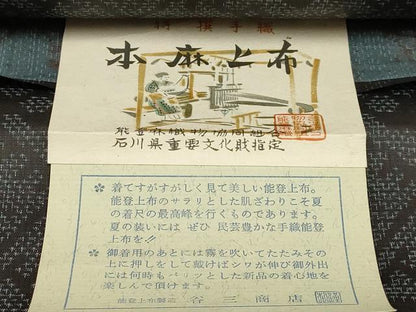 特撰手織
本麻上布
能登麻織物協同組合
石川県重要文化財指定
着てすがすがしく見て美しい能登上布。
能登上布のサラリとした肌ざわりこそ夏
の着尺の最高峰を行くものであります。
夏の装いには ぜひ 民芸豊かな手織能登
上布を〃
御着用のあとには霧を吹いてたたみその
上に押しをして戴けばシワが伸び御外出
には何時もパリッとした新品の着心地を
楽しんで頂けます。
能登上布製造 谷三商店